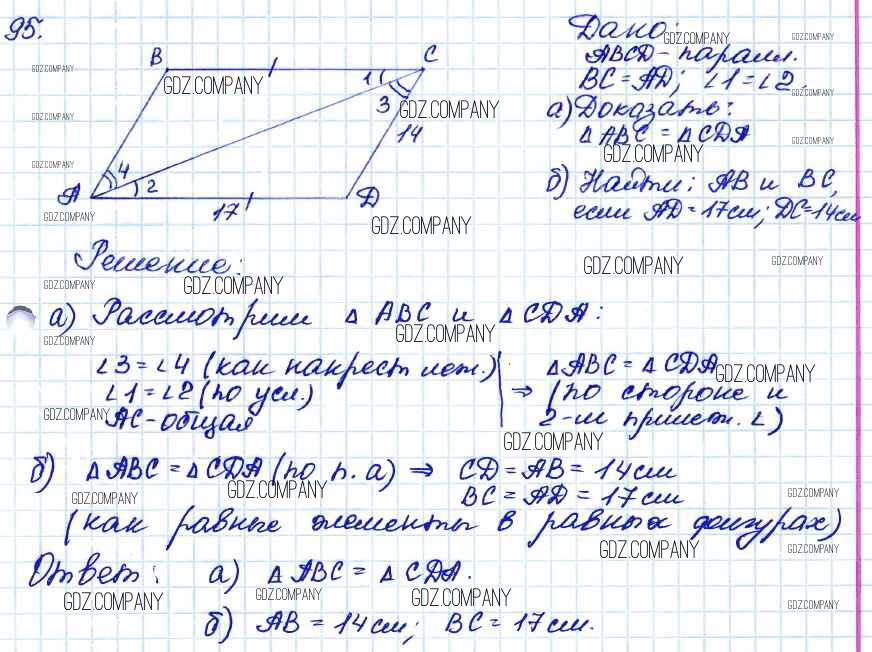 95.
Дано:
ABCD - паралл.
BC = AD; ∠1 = ∠2.
а) Доказать:
△ABC = △CDA
б) Найти: AB и BC,
если AD = 17 см; DC = 14 см
B
C
1
3
14
4
2
A
17
D
Решение:
а) Рассмотрим △ ABC и △ CDA:
∠3 = ∠4 (как накрест леж.)
∠1 = ∠2 (по усл.)
AC - общая
⇒
△ABC = △CDA
(по стороне и
2-м прилеж. ∠)
б) △ABC = △CDA (по п. а) ⇒ CD = AB = 14 см
BC = AD = 17 см
(как равные элементы в равных фигурах)
Ответ: а) △ABC = △CDA.
б) AB = 14 см; BC = 17 см.
GDZ.COMPANY